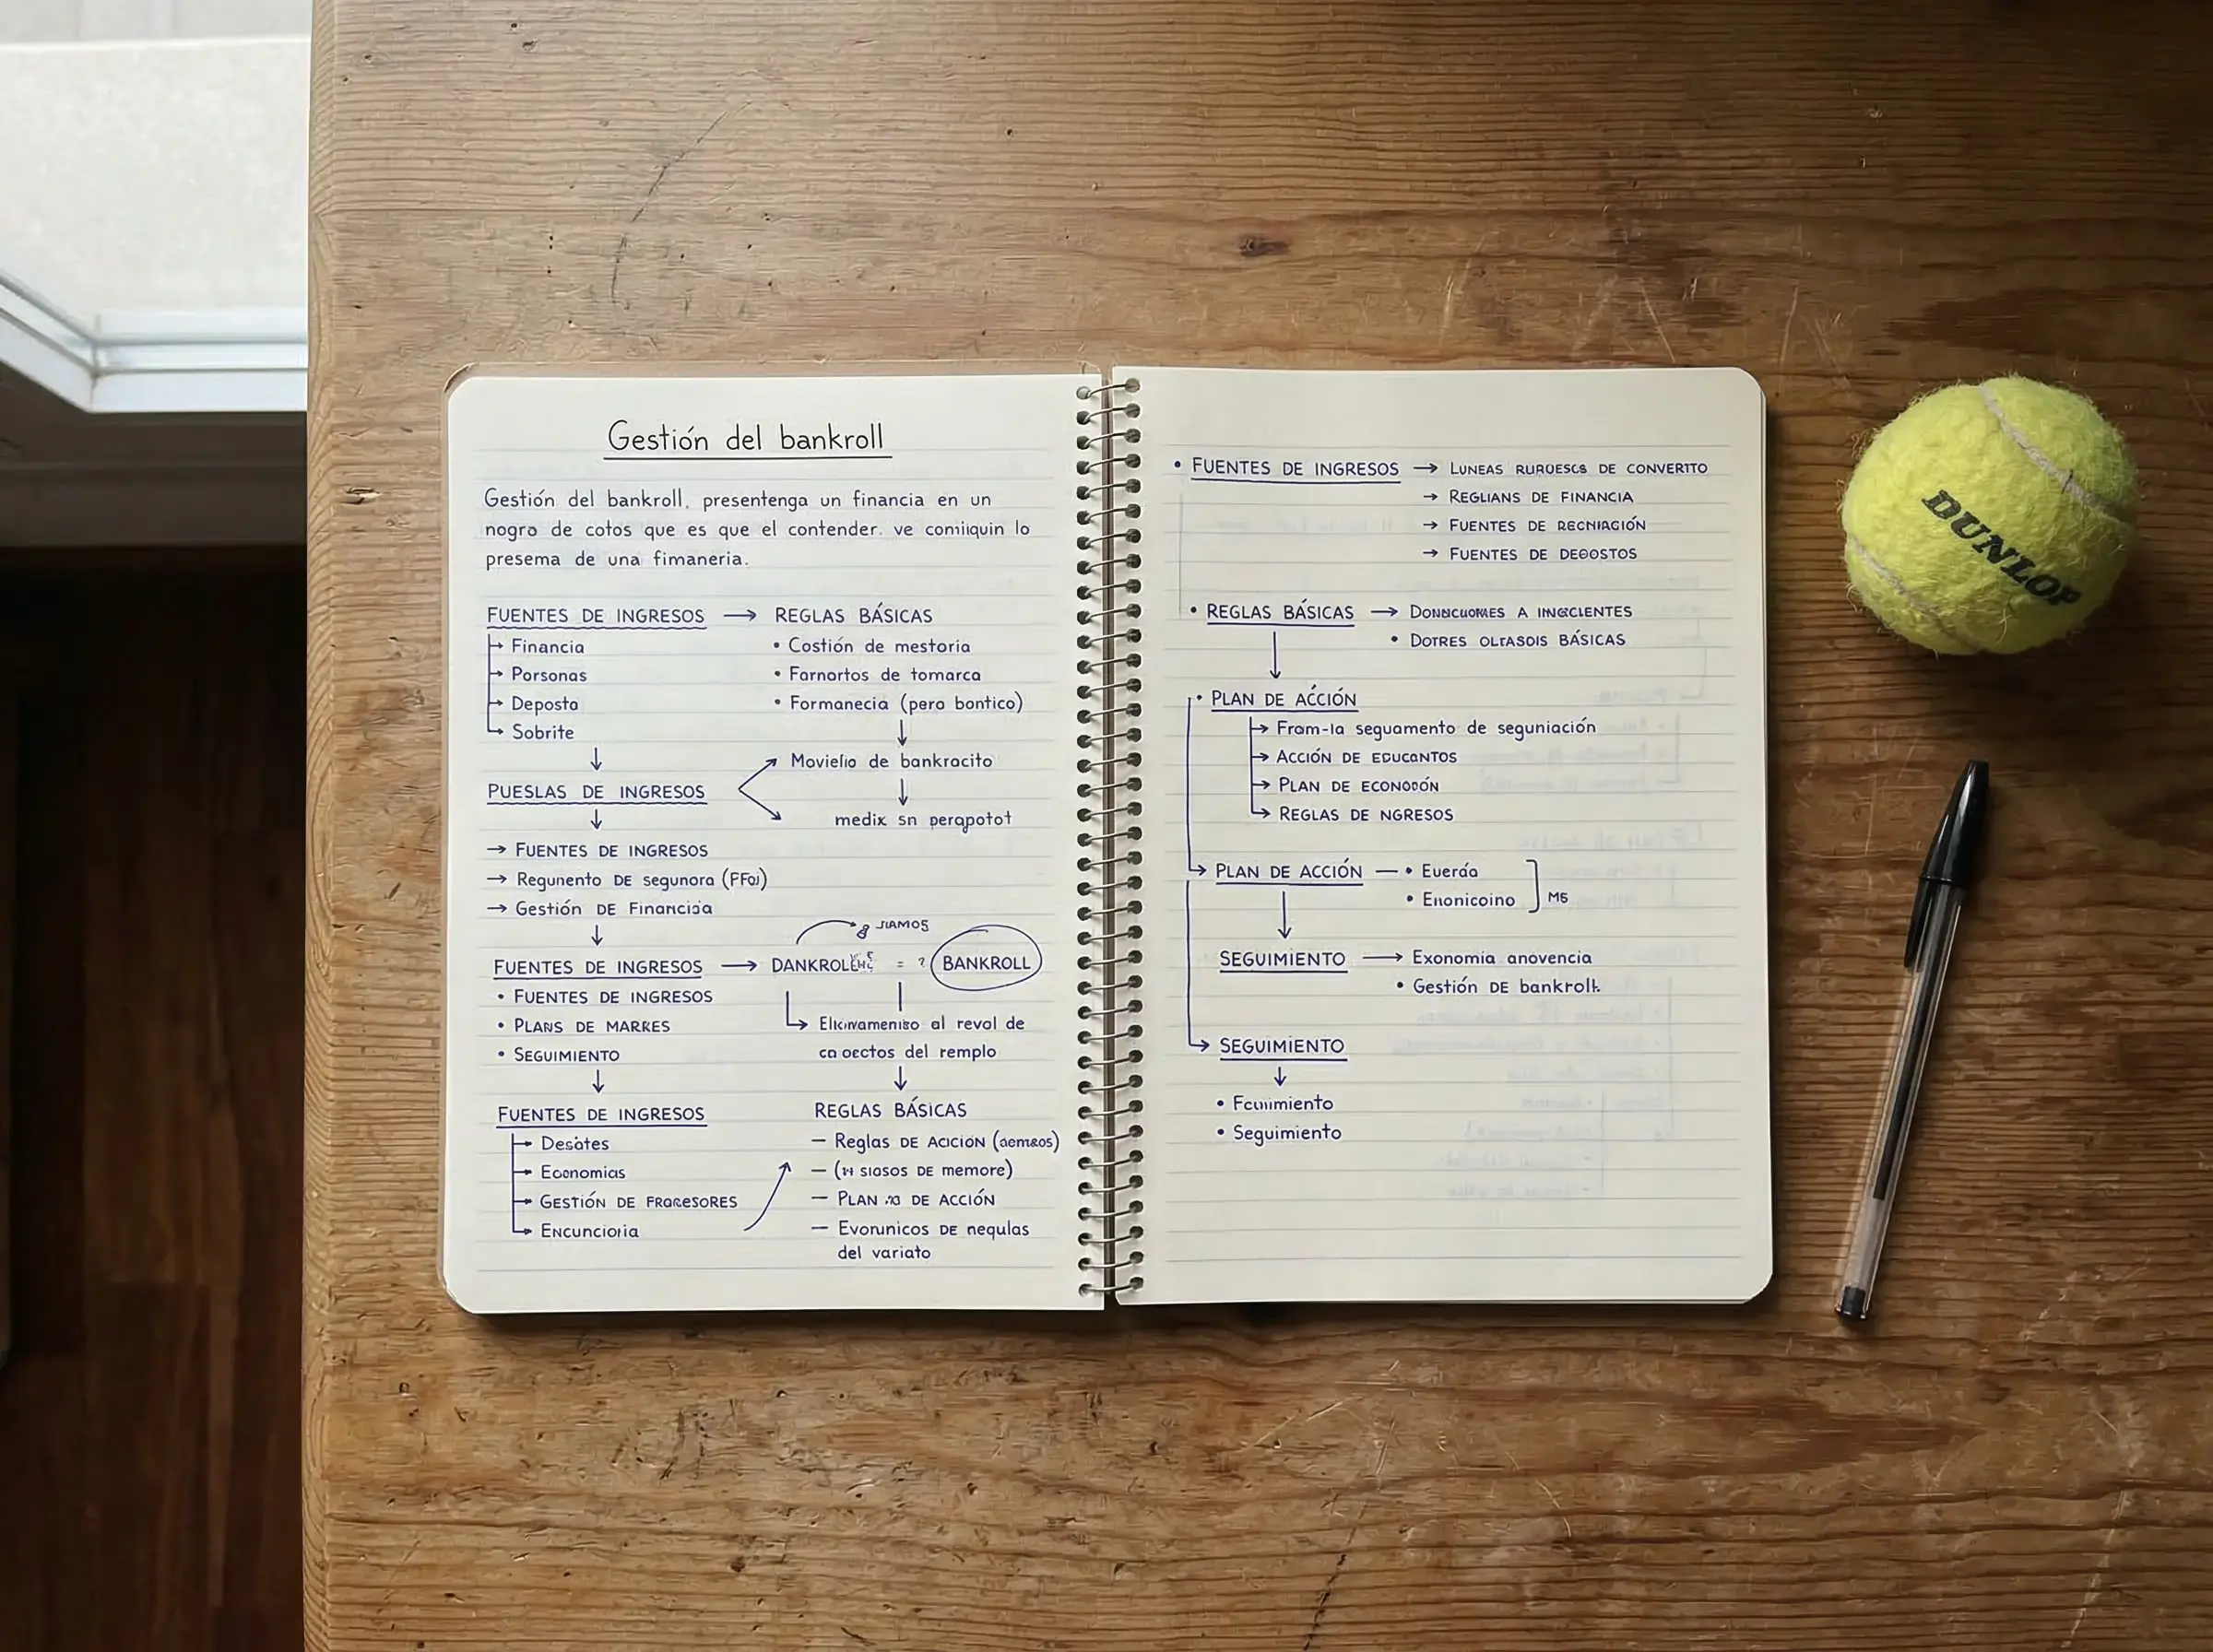 Gestión del bankroll
Gestión del bankroll, presentenga un financia en un
nogro de cotos que es que el contender. ve comiiquin lo
presema de una fimaneria.
FUENTES DE INGRESOS → REGLAS BÁSICAS
Financia
• Costión de mestoria
Porsonas
• Farnortos de tomarca
Deposta
• Formanecia (pero bontico)
Sobrite
Movielio de bankracito
PUESLAS DE INGRESOS
medix sn pergpotot
→ FUENTES DE INGRESOS
→ Regunento DE segunora
→ Gestión DE Financisa
JIAMOS
FUENTES DE INGRESOS → = ? BANKROLL
• FUENTES DE INGRESOS
• PLANS DE MARKES
al reval de
• SEGUIMIENTO
ca oectos del remplo
FUENTES DE INGRESOS
REGLAS BÁSICAS
Desates
— Reglas DE ACICION
Economias
DE memore)
GESTIÓN DE
— PLAN DE ACCIÓN
Encuncioria
— Evorunicos DE nequlas
del variato
• FUENTES DE INGRESOS → LUNEAS DE CONVERTTO
→ REGLIANS DE FINANCIA
→ FUENTES DE
→ FUENTES DE DEGOSTOS
• REGLAS BÁSICAS → A
• DOTRES BÁSICAS
• PLAN DE ACCIÓN
From-la seguamento de seguniación
ACCIÓN DE EDUCANTOS
PLAN DE
REGLAS DE NGRESOS
PLAN DE ACCIÓN — • Euerda
• Enonicoino M5
SEGUIMIENTO → Exonomia anovencia
• Gestión DE bankroll.
SEGUIMIENTO
• Fcuiimiento
• Seguimiento
DUNLOP